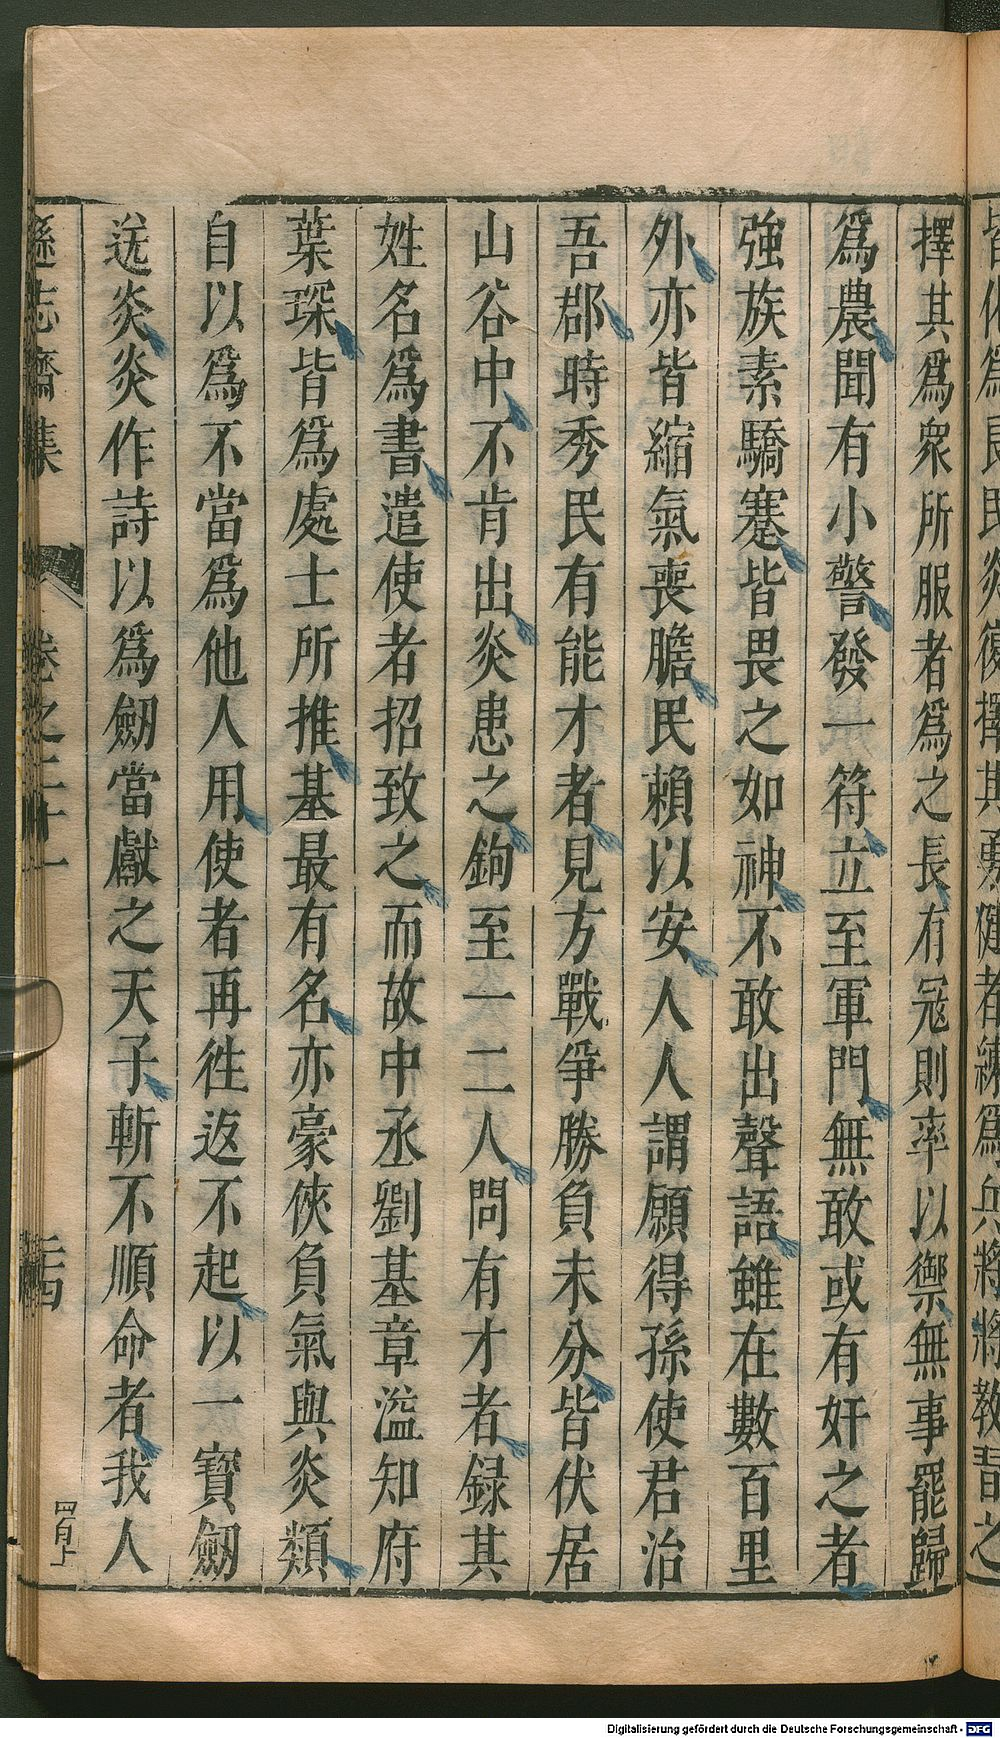 擇其爲衆所服者爲之長有冦則率以禦無事罷歸
爲農聞有小警發一符立至軍門無敢或有奸之者
強族素驕蹇皆畏之如神不敢出聲語雖在數百里
外亦皆縮氣喪膽民頼以安人人謂願得孫使君治
吾郡時秀民有能才者見方戰爭勝負未分皆伏居
山谷中不肯出炎患之鉤至一二人問有才者録其
姓名爲書遣使者招致之而故中丞劉基章溢知府
葉琛皆爲處士所推基最有名亦豪俠負氣與炎類
自以爲不當爲他人用使者再徃返不起以一寳劒
送炎炎作詩以爲劒當獻之天子斬不順命者我人
遜志齋集 卷之二十一 二十四
四百上
Digitalisierung gefördert durch die Deutsche Forschungsgemeinschaft - DFG